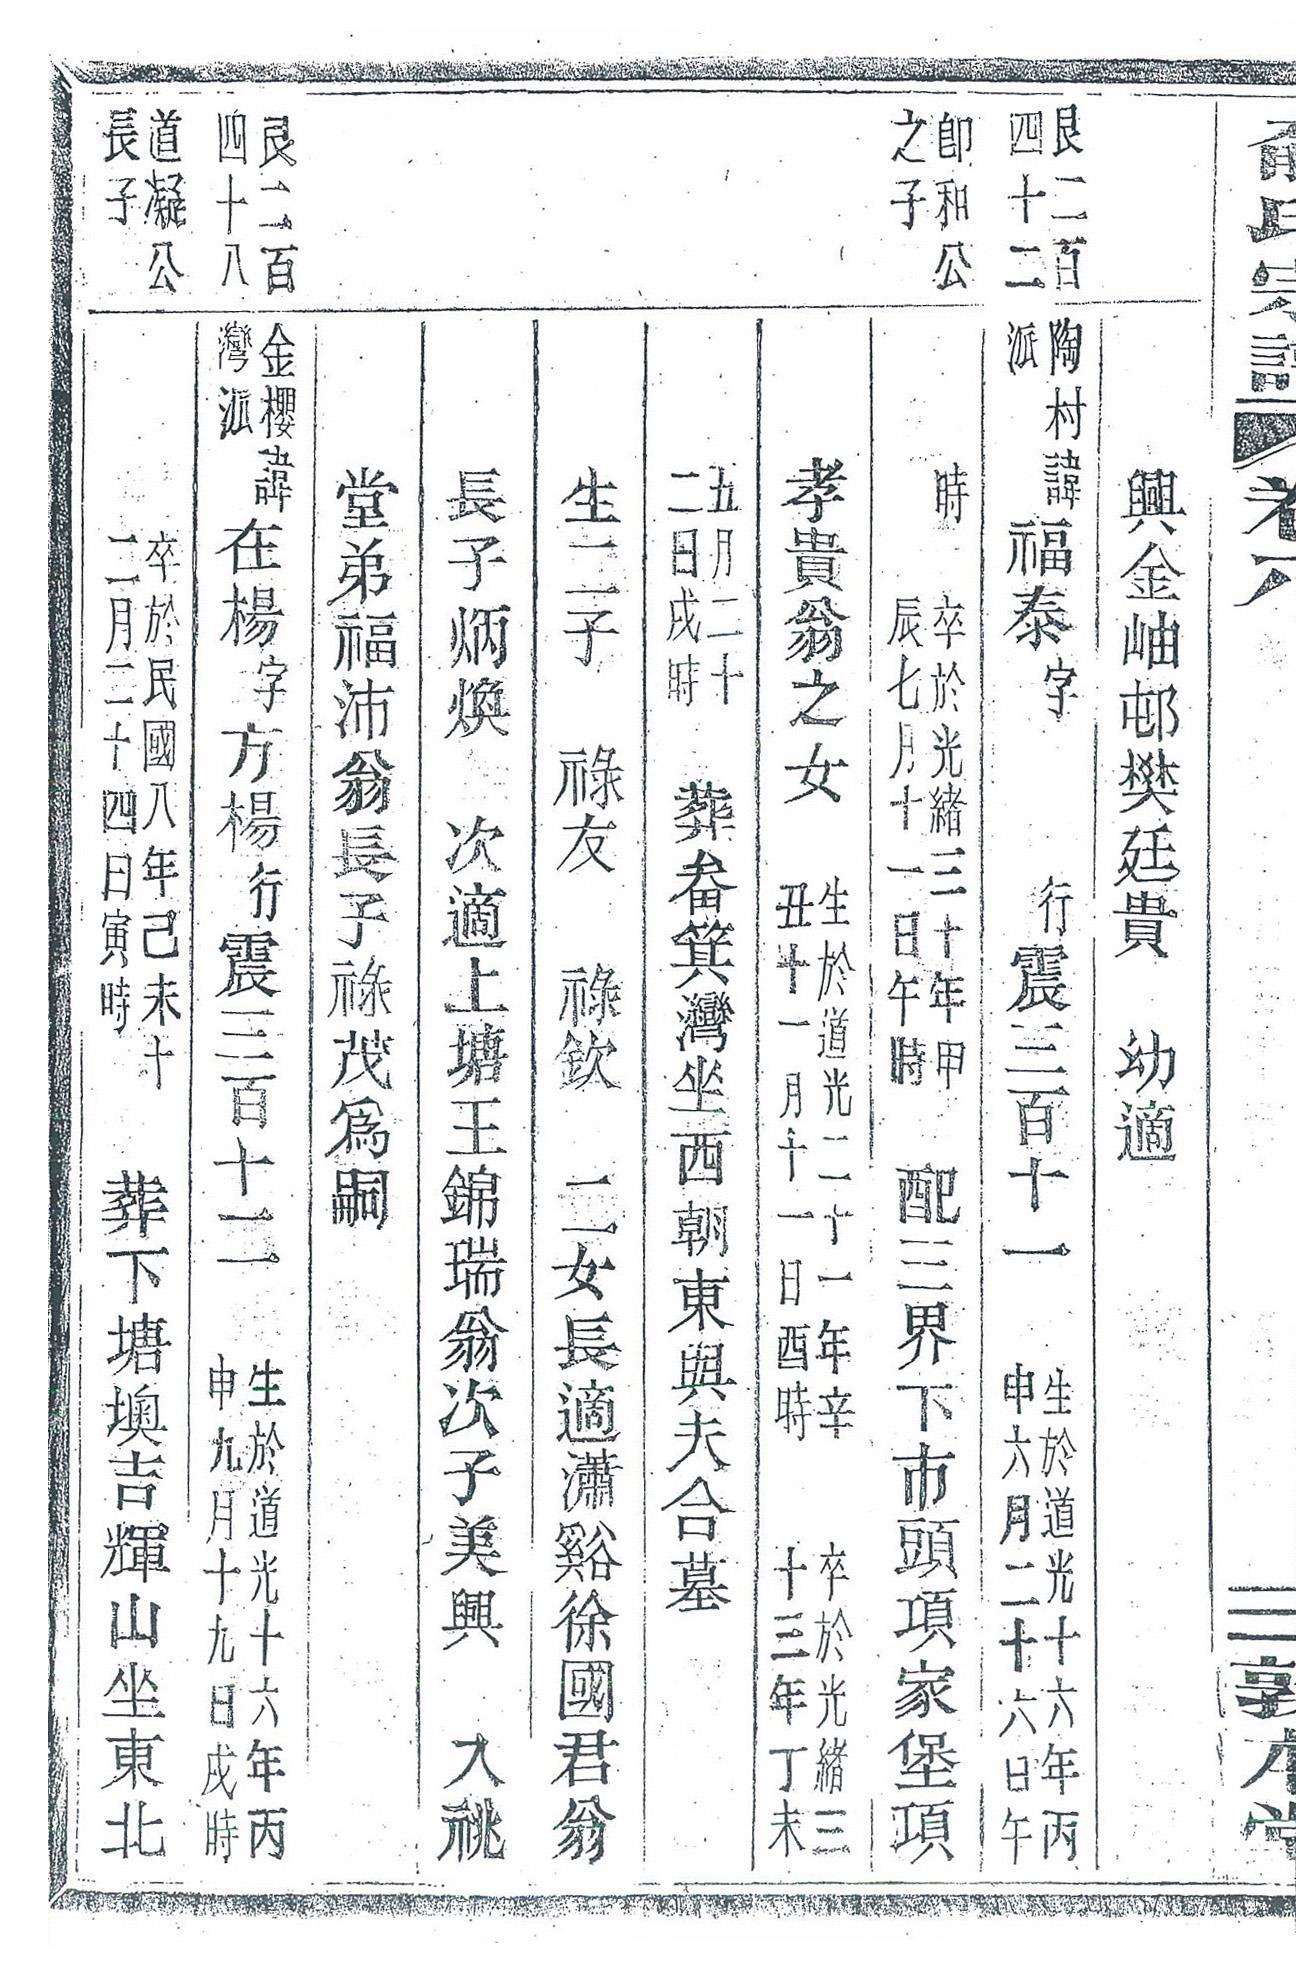 俞氏宗譜 卷六 三 敦本堂
興金岫邨樊廷貴 幼適
艮二百四十二
陶村派 諱福泰 字 行震三百十一 生於道光十六年丙申六月二十六日午
即和公之子
時 卒於光緒三十年甲辰七月十一日午時 配三界下市頭項家堡項
孝貴翁之女 生於道光二十一年辛丑十一月十一日酉時 卒於光緒三十三年丁未
五月二十二日戌時 葬畚箕灣坐西朝東與夫合墓
生二子 祿友 祿欽 二女長適瀟谿徐國君翁
長子炳煥 次適上塘王錦瑞翁次子美興 入祧
堂弟福沛翁長子祿茂爲嗣
艮二百四十八
金櫻灣派 諱在楊字方楊行震三百十二 生於道光十六年丙申九月十九日戌時
道凝公長子
卒於民國八年己未十二月二十四日寅時 葬下塘墺吉輝山坐東北